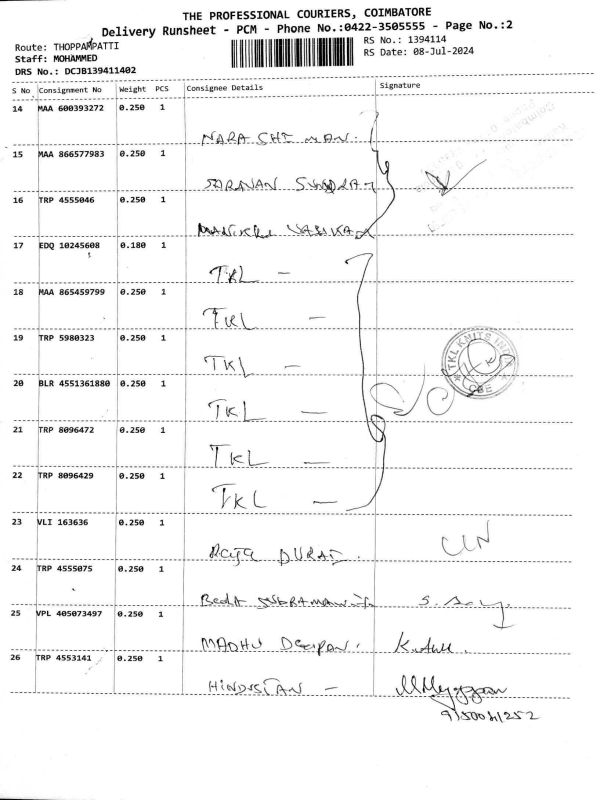 THE PROFESSIONAL COURIERS, COIMBATORE
Delivery Runsheet - PCM - Phone No.:0422-3505555 - Page No.:2
Route: THOPPAMPATTI
RS No.: 1394114
Staff: MOHAMMED
RS Date: 08-Jul-2024
DRS No.: DCJB139411402
S No Consignment No Weight PCS Consignee Details Signature
14 MAA 600393272 0.250 1
15 MAA 866577983 0.250 1
SARAVAN
16 TRP 4555046 0.250 1
17 EDQ 10245608 0.180 1
TKL -
18 MAA 865459799 0.250 1
TKL -
19 TRP 5980323 0.250 1
TKL -
20 BLR 4551361880 0.250 1
TKL -
21 TRP 8096472 0.250 1
TKL -
22 TRP 8096429 0.250 1
TKL -
TKL KNITS INDIA
CBE
23 VLI 163636 0.250 1
Raja DURAI
24 TRP 4555075 0.250 1
25 VPL 405073497 0.250 1
MADHU
26 TRP 4553141 0.250 1
HINDUSTAN -